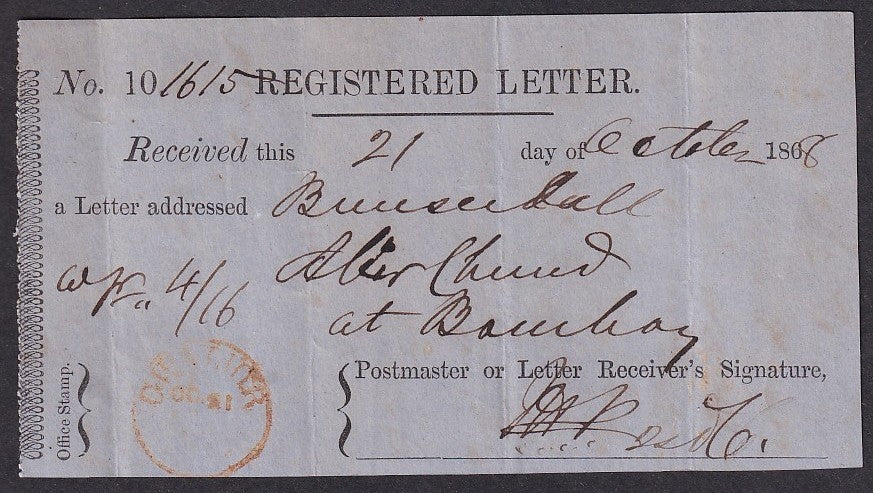 No. 101615 REGISTERED LETTER.
Received this 21 day of October 1868
a Letter addressed Bunserdall
Abir Chund
at Bombay
4/16
Office Stamp.
OC. 21
Postmaster or Letter Receiver's Signature,